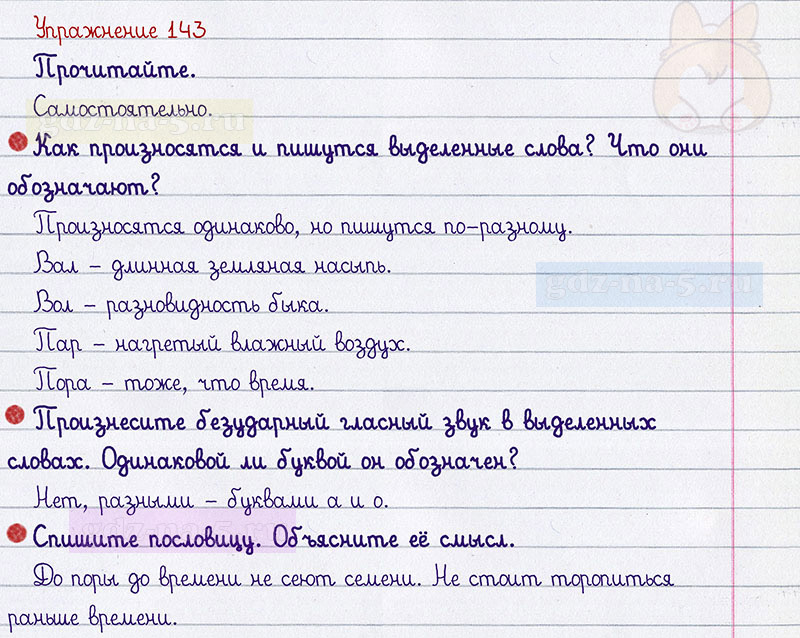 Упражнение 143
Прочитайте.
Самостоятельно.
gdz-na-5.ru
Как произносятся и пишутся выделенные слова? Что они
обозначают?
Произносятся одинаково, но пишутся по-разному.
Вал – длинная земляная насыпь.
gdz-na-5.ru
Вол – разновидность быка.
Пар – нагретый влажный воздух.
Пора – тоже, что время.
Произнесите безударный гласный звук в выделенных
словах. Одинаковой ли буквой он обозначен?
Нет, разными – буквами а и о.
gdz-na-5.ru
Спишите пословицу. Объясните её смысл.
До поры до времени не сеют семени. Не стоит торопиться
раньше времени.